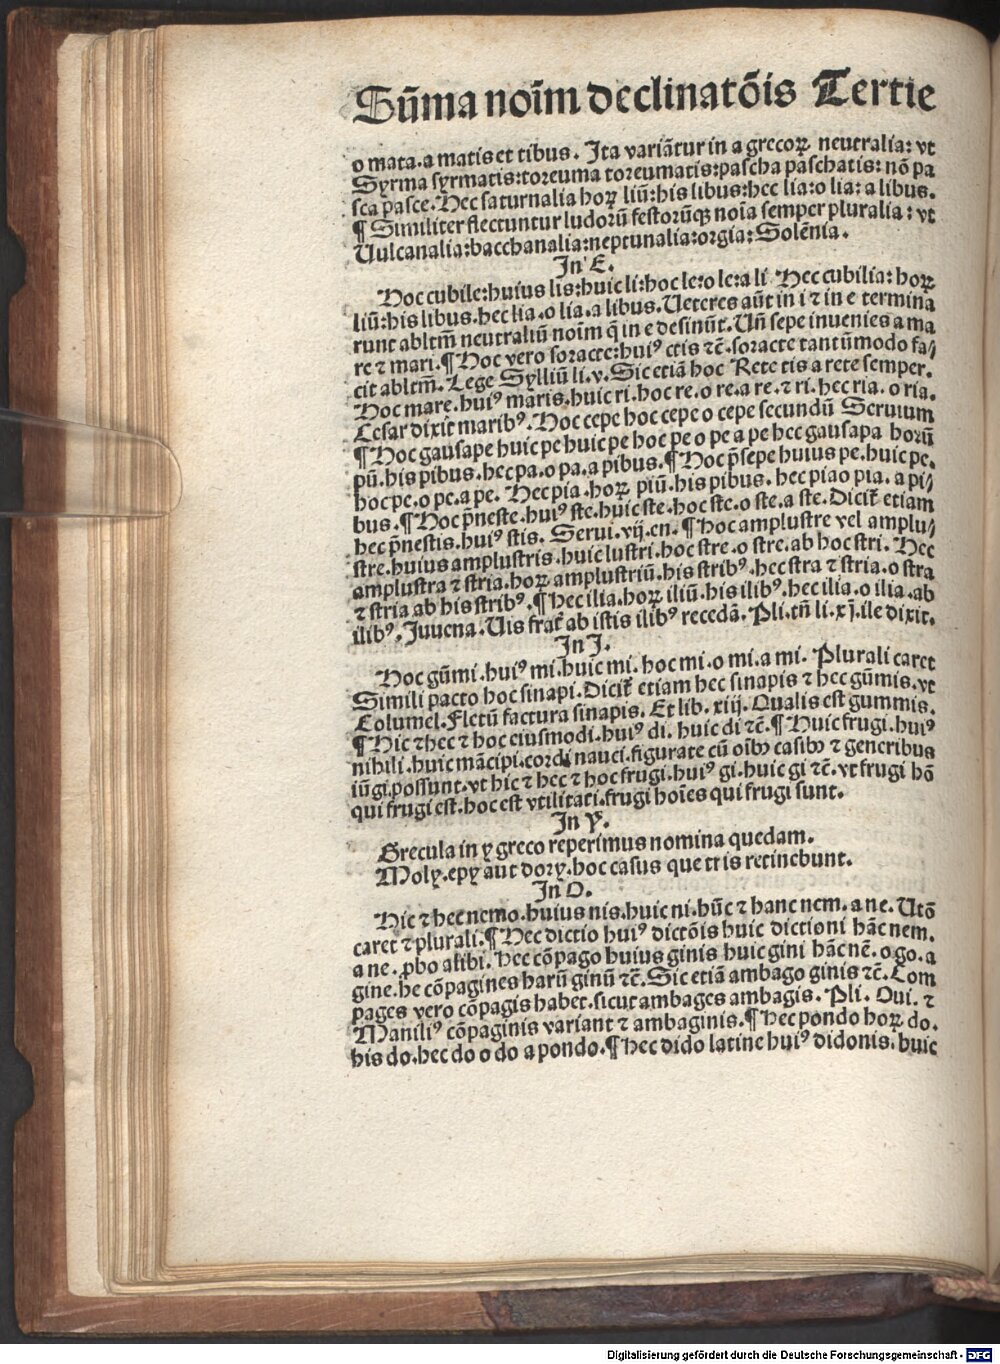 Sūma noīm declinatōis Tertie
o mata.a matis et tibus. Ita variātur in a grecoꝝ neutralia: vt
Syrma syrmatis:toreuma toreumatis:pascha paschatis: nō pa
sca pasce. Hec saturnalia hoꝝ liū: his libus: hec lia: o lia: a libus.
¶ Similiter flectuntur ludorū festorūqꝫ noīa semper pluralia: vt
Vulcanalia: bacchanalia: neptunalia: orgia: Solēnia.
In E.
Hoc cubile: huius lis: huic li: hoc le: o le: a li Hec cubilia: hoꝝ
liū: his libus. hec lia. o lia. a libus. Veteres aūt in i ⁊ in e termina
runt abltm̄ neutraliū noīm q̄ in e desinūt. Uñ sepe inuenies a ma
re ⁊ mari. ¶ Hoc vero soracte: huiꝰ ctis ⁊c̄. soracte tantūmodo fa/
cit abltm̄. Lege Sylliū li. v. Sic etiā hoc Rete tis a rete semper.
Hoc mare. huiꝰ maris. huic ri. hoc re. o re. a re. ⁊ ri. hec ria. o ria.
Cesar dixit maribꝰ. Hoc cepe hoc cepe o cepe secundū Seruium
¶ Hoc gausape huic pe huic pe hoc pe o pe a pe hec gausapa horū
pū. his pibus. hec pa. o pa. a pibus. ¶ Hoc p̄sepe huius pe. huic pe.
hoc pe. o pe. a pe. Hec pia. hoꝝ piū. his pibus. hec pia o pia. a pi/
bus. ¶ Hoc p̄neste. huiꝰ ste. huic ste. hoc ste. o ste. a ste. Dicit̄ etiam
hec p̄nestis. huiꝰ stis. Serui. vij. en. ¶ Hoc amplustre vel amplu/
stre. huius amplustris. huic lustri. hoc stre. o stre. ab hoc stri. Hec
amplustra ⁊ stria. hoꝝ amplustriū. his stribꝰ. hec stra ⁊ stria. o stra
⁊ stria ab his stribꝰ. ¶ Hec ilia. hoꝝ iliū. his ilibꝰ. hec ilia. o ilia. ab
ilibꝰ. Juuena. Vis frat̄ ab istis ilibꝰ recedā. Pli. tn̄ li. xj. ile dixit.
In J.
Hoc gūmi. huiꝰ mi. huic mi. hoc mi. o mi. a mi. Plurali caret
Simili pacto hoc sinapi. Dicit̄ etiam hec sinapis ⁊ hec gūmis. vt
Columel. Fletū factura sinapis. Et lib. xiij. Qualis est gummis.
¶ Hic ⁊ hec ⁊ hoc eiusmodi. huiꝰ di. huic di ⁊c̄. ¶ Huic frugi. huiꝰ
nihili. huic mācipi. cordi nauci. figurate cū oībꝫ casibꝫ ⁊ generibus
iūgi possunt. vt hic ⁊ hec ⁊ hoc frugi. huiꝰ gi. huic gi ⁊c̄. vt frugi hō
qui frugi est. hoc est vtilitati. frugi hoīes qui frugi sunt.
In Y.
Grecula in y greco reperimus nomina quedam.
Moly. epy aut dory. hoc casus que tris retinebunt.
In O.
Hic ⁊ hec nemo. huius nis. huic ni. hūc ⁊ hanc nem. a ne. Utō
caret ⁊ plurali. ¶ Hec dictio huiꝰ dictōis huic dictioni hāc nem.
a ne. ꝓbo alibi. Hec cōpago huius ginis huic gini hāc nē. o go. a
gine. he cōpagines harū ginū ⁊c̄. Sic etiā ambago ginis ⁊c̄. Com
pages vero cōpagis habet. sicut ambages ambagis. Pli. Oui. ⁊
Maniliꝰ cōpaginis variant ⁊ ambaginis. ¶ Hec pondo hoꝝ do.
his do. hec do o do a pondo. ¶ Hec dido latine huiꝰ didonis. huic
Digitalisierung gefördert durch die Deutsche Forschungsgemeinschaft - DFG